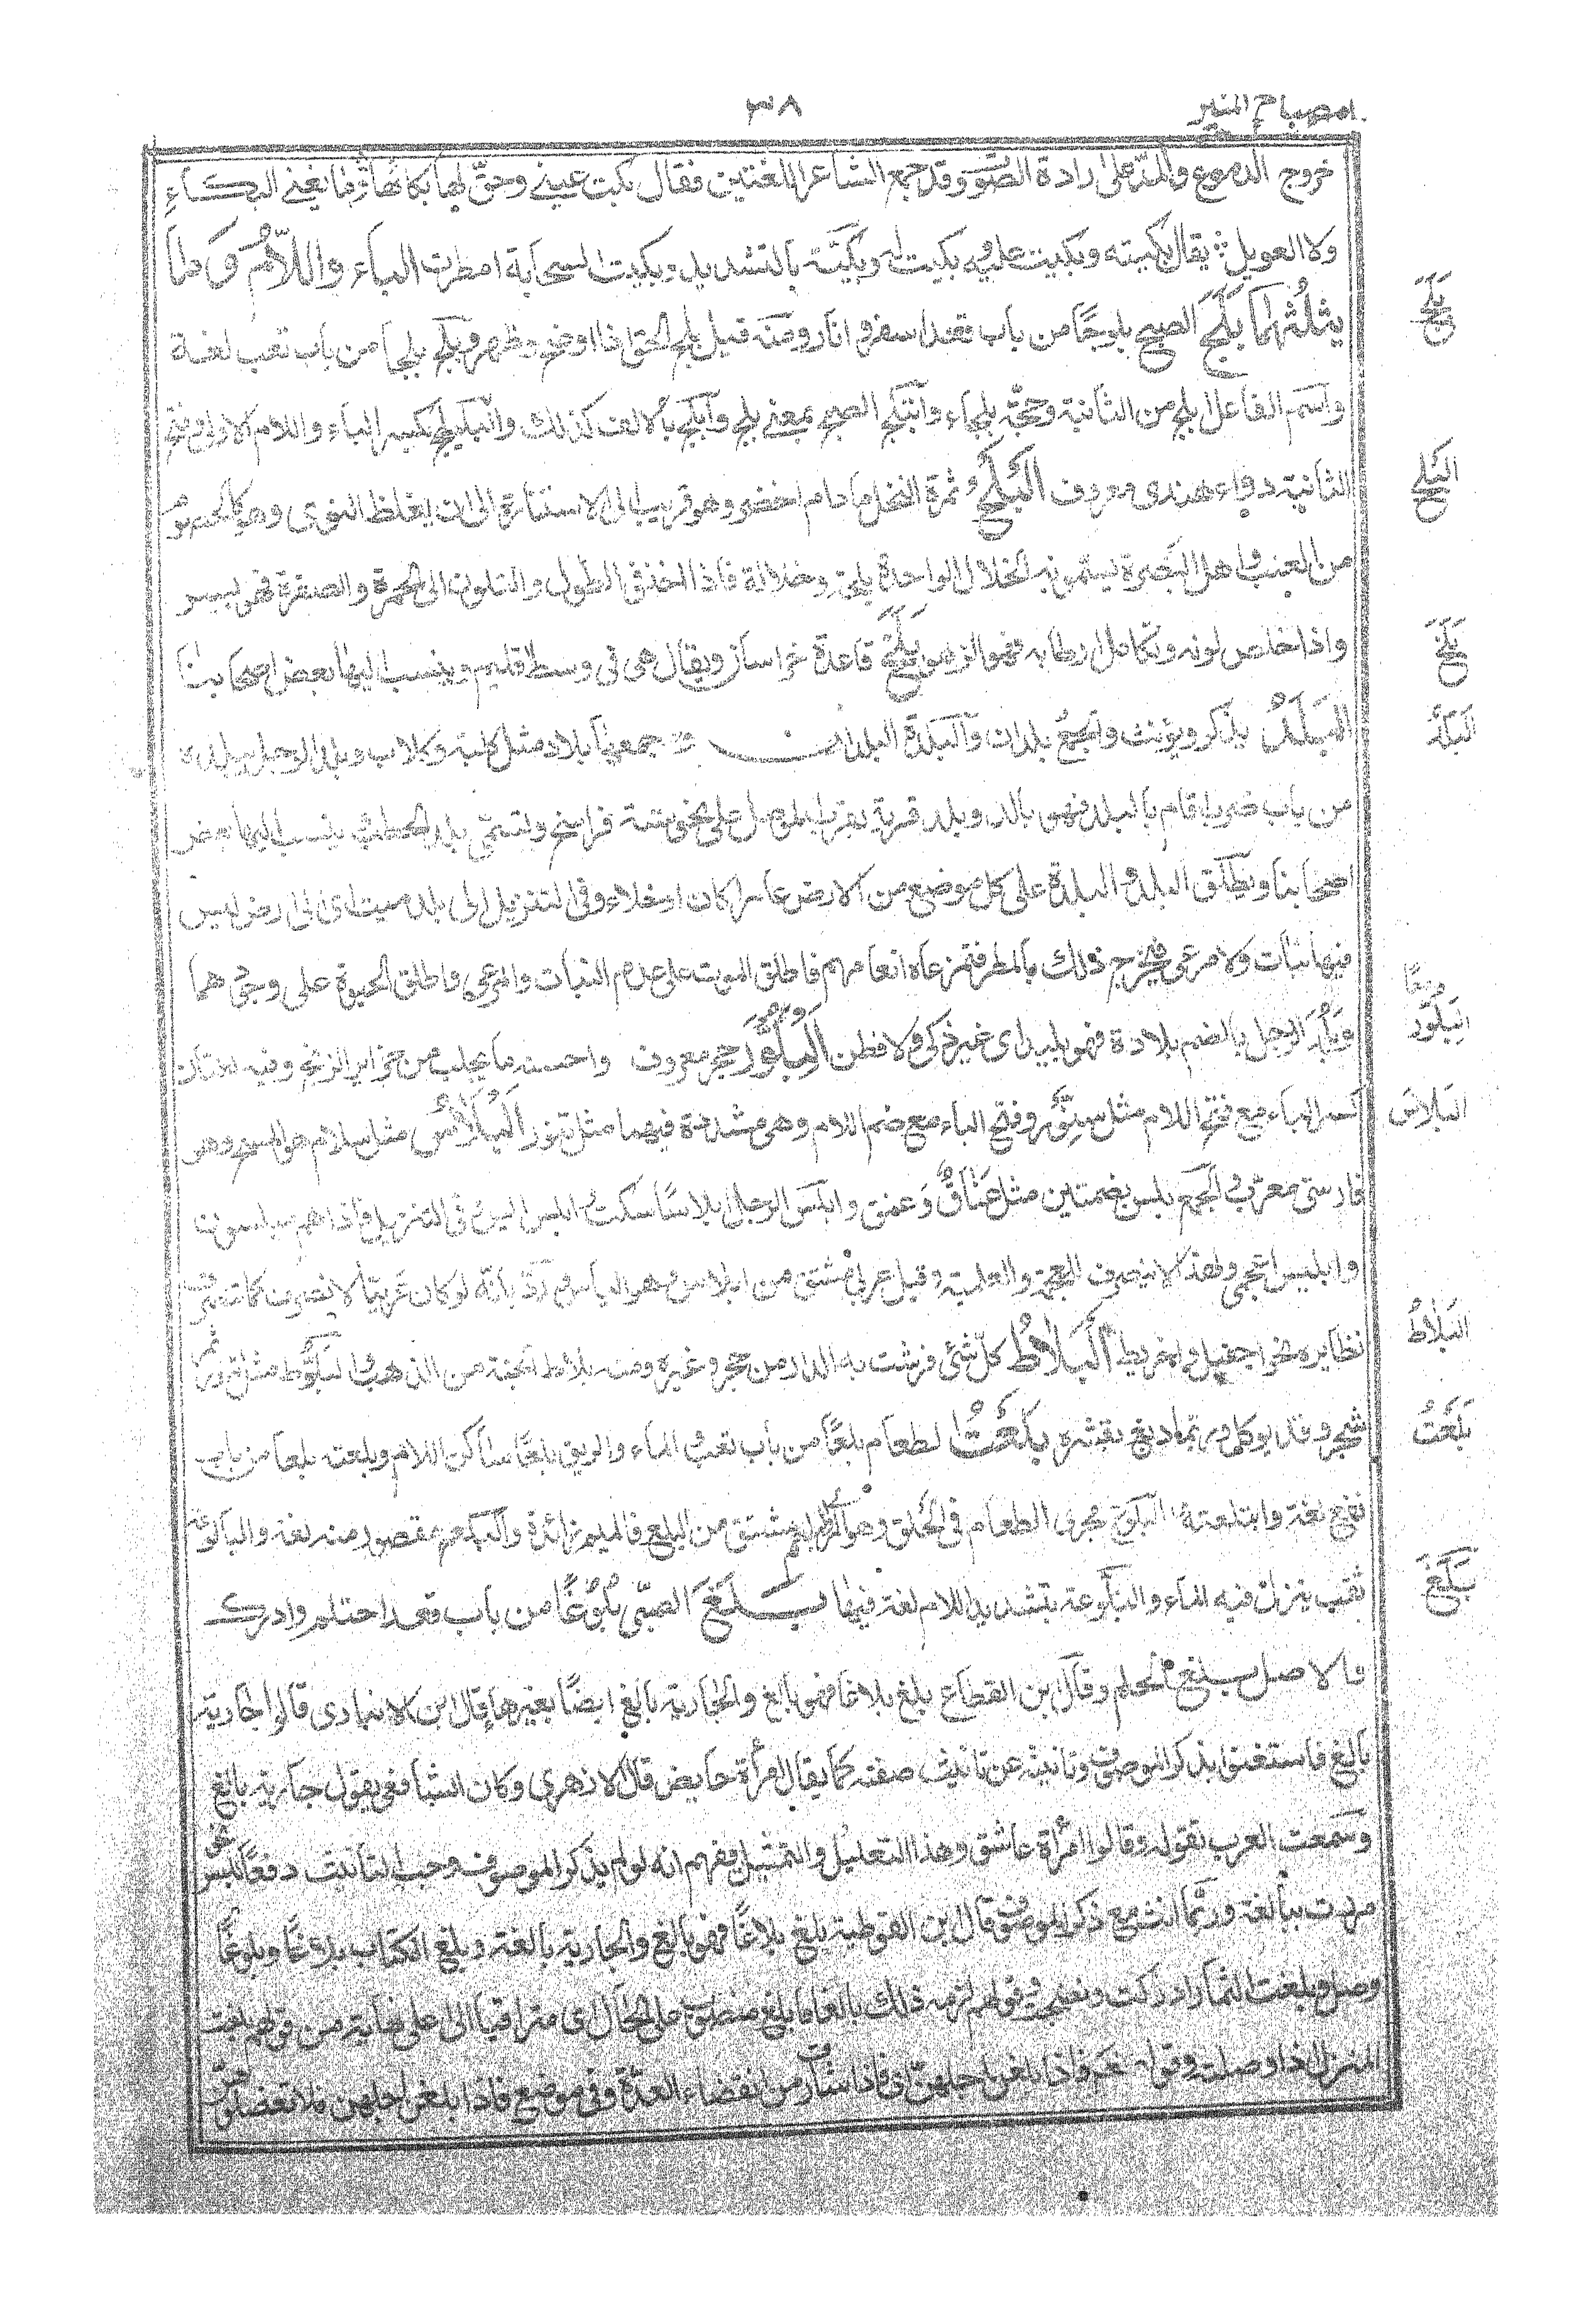 مصباح المنير
٣٨
خروج الدموع والمد على ارادة الصوت وقد جمع الشاعر اللغتين فقال بكت عيني وحق لها بكاها وما يغني البكاء
ولا العويل يقال بكيته وبكيت عليه وبكيت له وبكيته بالتشديد وبكت السحابة امطرت الباء واللام وما
يثلثهما بَلَجَ الصبح بلوجا من باب قعد اسفر و انار ومنه قيل بلج الحق اذا اوضح وظهر وبلج بلجا من باب تعب لغة
واسم الفاعل ابلج من الثانية وحجة بلجاء وابتلج الصبح بمعنى بلج وابلج بالالف كذلك والبليلج بكسر الباء واللام الاولى وفتح
الثانية دواء هندى معروف البَلَحُ ثمرة النخل ما دام اخضر وهو قريب الى الاستدارة الى ان يغلظ النوى وهو كالحصرم
من العنب واهل البصرة يسمونه الخلال الواحدة بلحة وخلالة فاذا اخذ فى الطول والتلون الى الحمرة والصفرة فهو بسر
واذا خلص لونه وتكامل ارطابه فهو الزهو بَلْخ قاعدة خراسان ويقال هى فى وسط اقليم وينسب اليها بعض اصحابنا
البَلَدُ يذكر ويؤنث والجمع بلدان والبلدة البلد جمعها بلاد مثل كلبة وكلاب وبلد الرجل يبلد
من باب ضرب اقام بالبلد فهو بالد وبلد قرية بقرب الموصل على نحو ستة فراسخ وتسمى بلد الحطب ينسب اليها بعض
اصحابنا ويطلق البلد والبلدة على كل موضع من الارض عامرا كان او خلاء وفى التنزيل الى بلد ميت اى الى ارض ليس
فيها نبات ولا مرعى فيخرج ذلك بالمطر فترعاه انعامهم فاطلق الموت على عدم النبات والمرعى واطلق الحيوة على وجودهما
وبلد الرجل بالضم بلادة فهو بليد اى غير ذكى ولا فطن البلور حجر معروف واحسنه ما يجلب من جزاير الزنج وفيه لغتان
كسر الباء مع فتح اللام مثل سنور وفتح الباء مع ضم اللام وهى مشددة فيهما مثل تنور البَلَاسُ مثل سلام هو المسح وهو
فارسى معرب والجمع بلس بضمتين مثل عناق وعنق وابلس الرجل ابلاسا سكت وابلس ايس وفى التنزيل فاذا هم مبلسون
وابليس اعجمى ولهذا لا ينصرف للعجمة والعلمية وقيل عربى مشتق من ابلاس وهو الياس ورد بانه لو كان عربيا لانصرف كما ينصرف
نظايره نحو اجفيل واخريط البَلَاطُ كل شئ فرشت به الدار من حجر وغيره ومنه بلاط الجنة من الذهب والبلوط مثل تنور ثمر
شجر وقد يوكل وربما دبغ بقشره بَلِعْتُ الطعام بلعا من باب تعب والماء والريق بلعا ساكن اللام وبلعته بلعا من باب
نفع لغة وابتلعته البلعوم مجرى الطعام فى الحلق وهو المرى مشتق من البلع فالميم زائدة والبلعم مقصور منه لغة والبالوعة
ثقب ينزل فيه الماء والبلوعة بتشديد اللام لغة فيها بَلَغَ الصبى بلوغا من باب قعد احتلم وادرك
والاصل بلغ الحلم وقال ابن القطاع بلغ بلاغا فهو بالغ والجارية بالغ ايضا بغير هاء قال ابن الانبارى قالوا جارية
بالغ فاستغنوا بذكر الموصوف وتانيثه عن تانيث صفته كما يقال امرأة حايض قال الازهرى وكان الشافعى يقول جارية بالغ
وسمعت العرب تقوله وقالوا امرأة عاشق وهذا التعليل والتمثيل يفهم انه لو لم يذكر الموصوف وجب التانيث دفعا للبس نحو
مررت ببالغة وربما انث مع ذكر الموصوف قال ابن القوطية بلغ بلاغا فهو بالغ والجارية بالغة وبلغ الكتاب بلاغا وبلوغا
وصل وبلغت الثمار ادركت ونضجت وقولهم لزمه ذلك بالغا ما بلغ منصوب على الحال اى مترقيا الى اعلى نهاية من قولهم بلغت
المنزل اذا وصلت وقوله فاذا بلغن اجلهن اى فاذا شارفن انقضاء العدة وفى موضع فاذا بلغن اجلهن فلا تعضلوهن
بَلَجَ
البَلَح
بَلْخ
البَلَدُ
البِلَّور
البَلَاسُ
البَلَاطُ
بَلِعْتُ
بَلَغَ